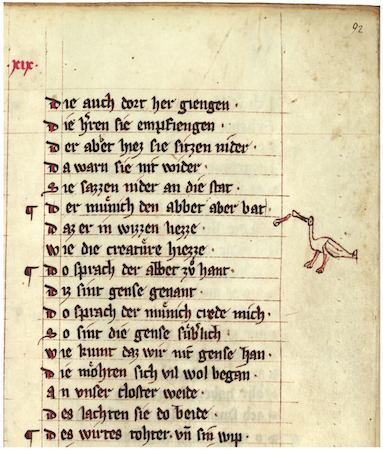 92
·xix·
Die auch dort her giengen·
Die h̾ren sie empfiengen·
Der abet hiez sie sitzen nider·
Da warn sie nit wider·
Sie sazzen nider an die stat·
¶ Der mu̾nich den abbet aber bat·
Daz er in wizzen liezze·
Wie die creatu̾re hiezze·
¶ Do sprach der abbet zů hant·
Diz sint gense genant·
Do sprach der mu̾nich crede mich·
So sint die gense su̾b̾lich·
Wie kumt daz wir nit gense han·
Die mo̾hten sich vil wol began·
An vnser closter weide·
Des lachten sie do beide·
¶ Des wirtes tohter· vn̄ sin wip·